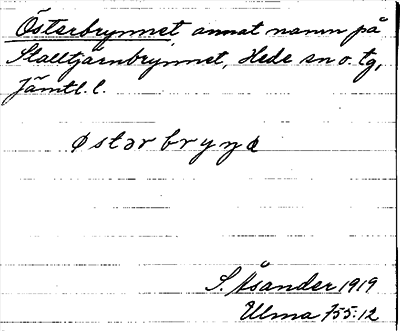 Österbrynnet, annat namn på
Stalltjärnbrynnet, Hede sn o. tg,
Jämtl. l.
østərbryṇə
S. Åsander 1919
Ulma 755:12